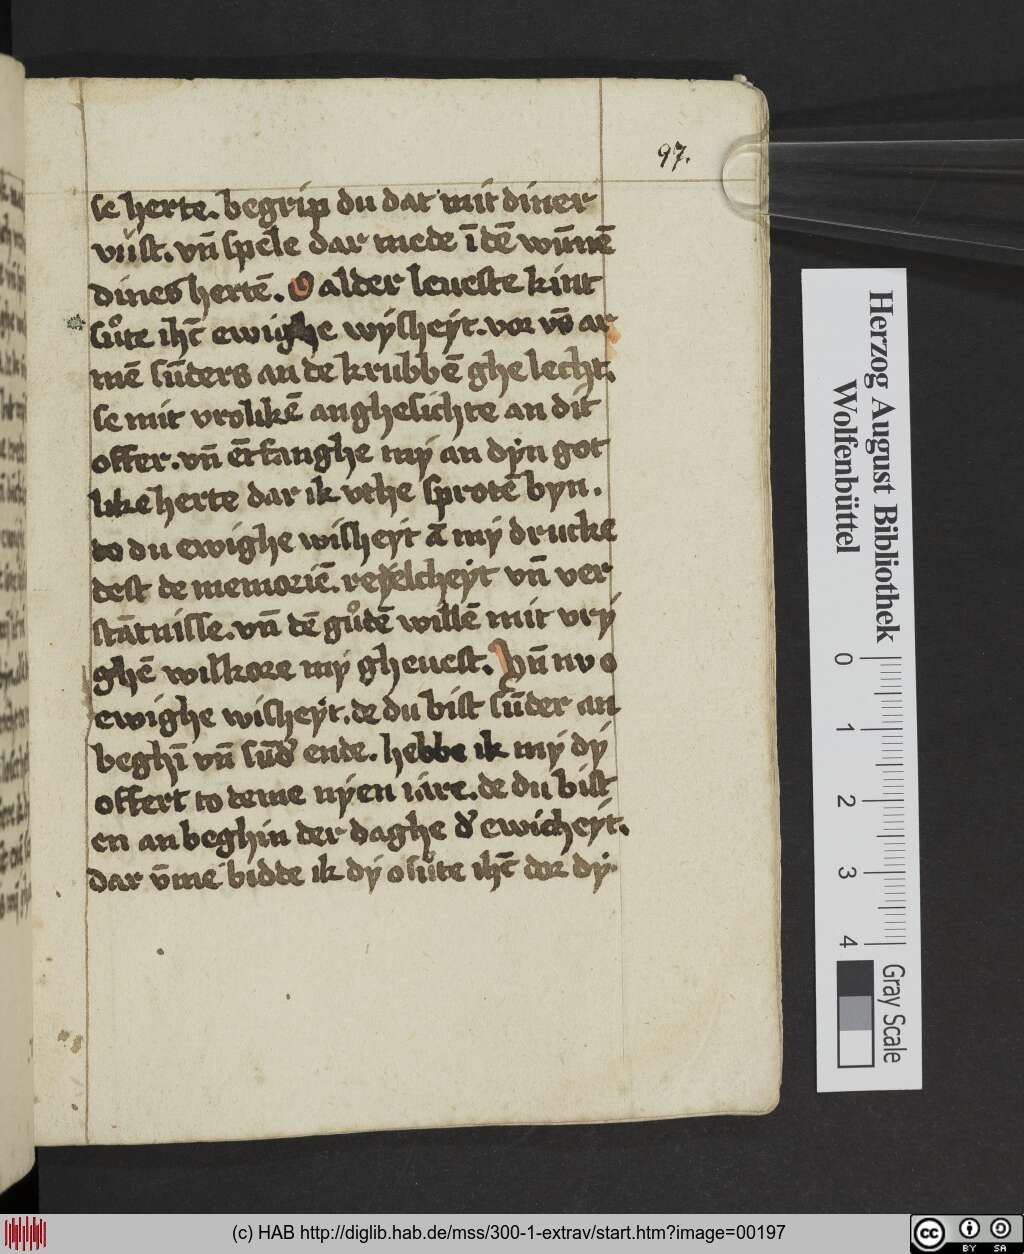 97.
se herte. begrip du dat mit diner
vuͤst. vn̄ spele dar mede ī dē wn̄nē
dines hertē. O alder leueste kint
suͦte ihc̄ ewighe wÿsheÿt. vor vō ar
mē sūders an de krubbē ghelecht.
se mit vrolikē anghesichte an dit
offer. vn̄ ērfanghe mÿ an dÿn got
like herte dar ik vthe sprotē byn.
do du ewighe wisheÿt ā mÿ drucke
dest de memoriē. redelcheÿt vn̄ ver
stātnisse. vn̄ dē guͦdē willē mit vrÿ
ghē wilkore mÿ gheuest. Vn̄ nv o
ewighe wisheÿt. de du bist sūder an
beghī vn̄ sūd' ende. hebbe ik mÿ dÿ
offert to deme nÿen iare. de du bist
en anbeghin der daghe d' ewicheÿt.
Dar v̄me bidde ik dÿ o suͦte ihc̄ dor dÿ
Herzog August Bibliothek
Wolfenbüttel
0 1 2 3 4
Gray Scale
(c) HAB http://diglib.hab.de/mss/300-1-extrav/start.htm?image=00197
cc BY SA